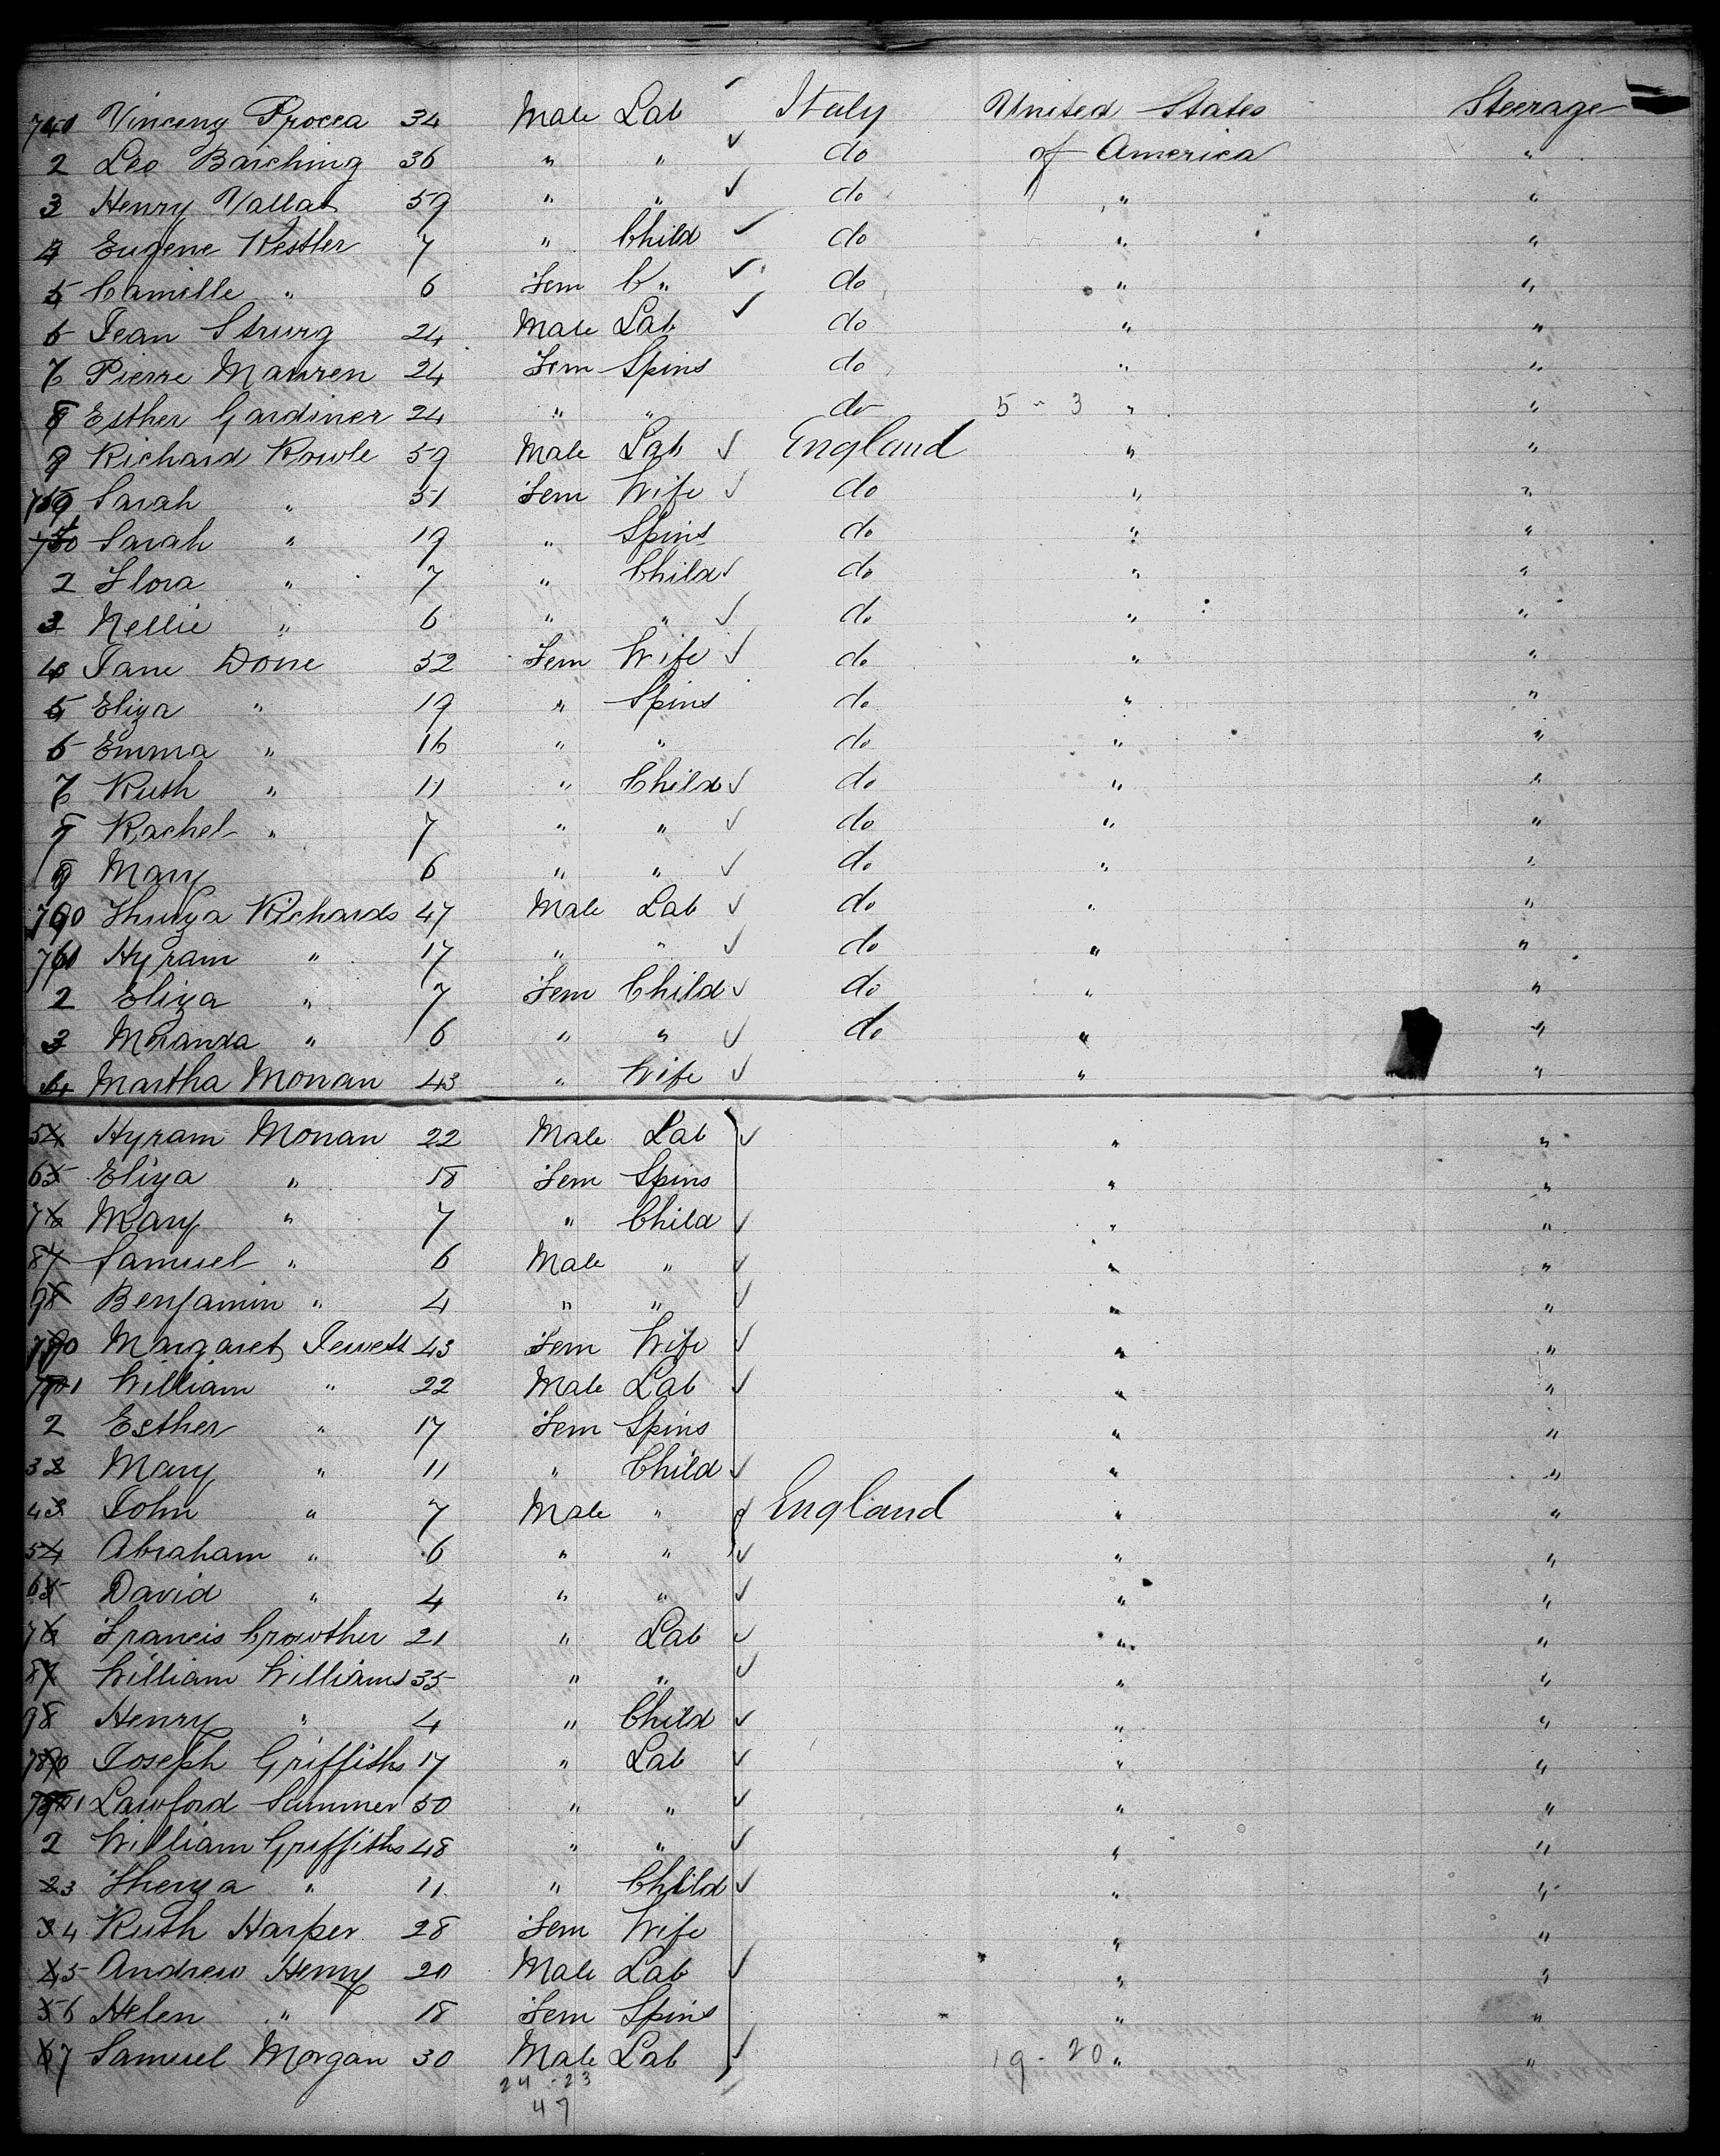 740 Vinceny Procca 34 Male Lab Italy United States Steerage
2 Leo Baiching 36 " " do of America "
3 Henry Vallat 59 " " do " "
4 Eugene Kestler 7 " Child do " "
5 Camille " 6 Fem C " do " "
6 Jean Strurg 24 Male Lab do " "
7 Pierre Mauren 24 Fem Spins do " "
8 Esther Gardiner 24 " " do 5 - 3 " "
9 Richard Rowle 59 Male Lab England " "
Sarah " 51 Fem Wife do " "
Sarah " 19 " Spins do " "
2 Flora " 7 " Child do " "
3 Nellie " 6 " " do " "
4 Jane Done 52 Fem Wife do " "
5 Eliza " 19 " Spins do " "
6 Emma " 16 " " do " "
7 Ruth " 11 " Child do " "
8 Rachel " 7 " " do " "
9 Mary 6 " " do " "
760 Richards 47 Male Lab do " "
761 Hyram " 17 " " do " "
2 Eliza " 7 Fem Child do " "
3 Miranda " 6 " " do " "
4 Martha Monan 43 " Wife " "
5 Hyram Monan 22 Male Lab " "
6 Eliza " 18 Fem Spins " "
7 Mary " 7 " Child " "
8 Samuel " 6 Male " " "
9 Benjamin " 4 " " " "
Margaret Jewett 43 Fem Wife " "
William " 22 Male Lab " "
2 Esther " 17 Fem Spins " "
3 Mary " 11 " Child " "
4 John " 7 Male " England " "
5 Abraham " 6 " " " "
6 David " 4 " " " "
7 Francis Crowther 21 " Lab " "
8 William Williams 35 " " " "
9 Henry " 4 " Child " "
Joseph Griffiths 17 " Lab " "
Lawford Summer 50 " " " "
2 William Griffiths 48 " " " "
3 " 11 " Child " "
4 Ruth Harper 28 Fem Wife " "
5 Andrew Henry 20 Male Lab " "
6 Helen " 18 Fem Spins " "
7 Samuel Morgan 30 Male Lab 19 - 20 " "
24 - 23
47